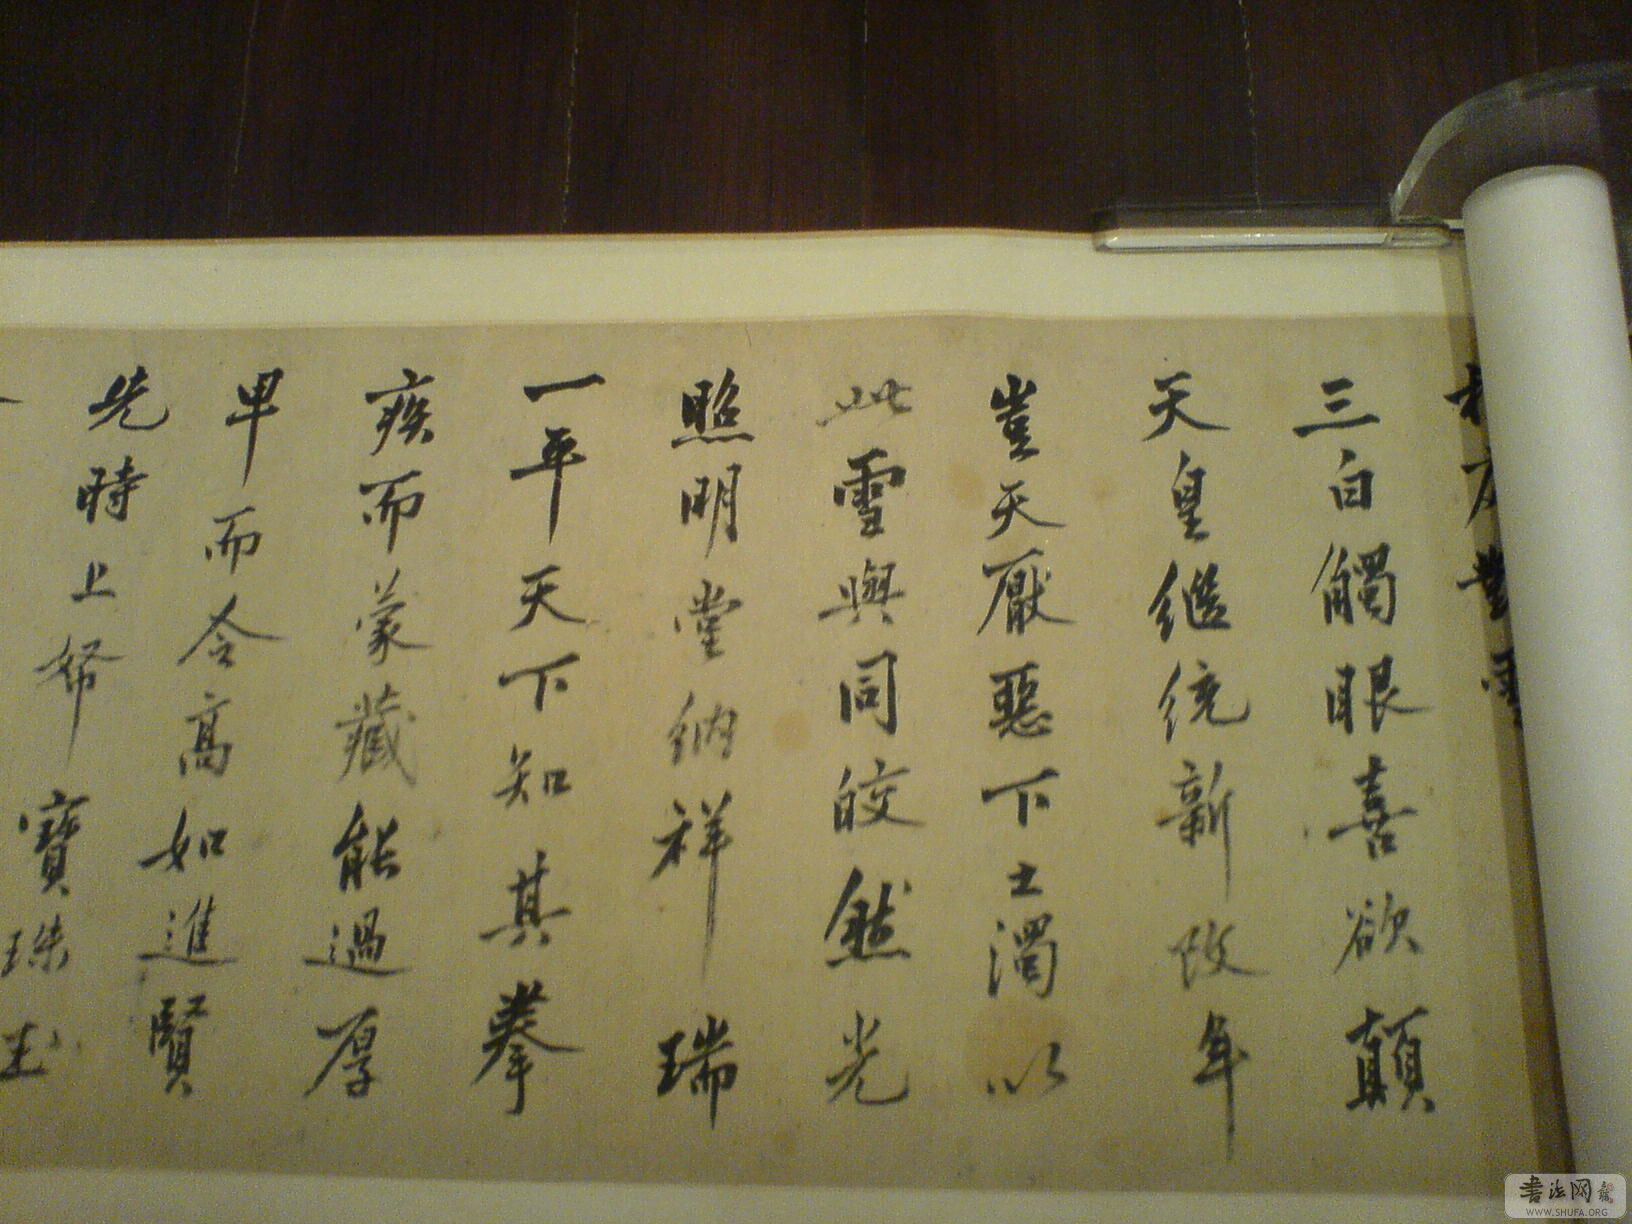 三白觸眼喜欲顛
天皇繼統新改年
豈天厭惡下土濁以
此雪與同皎然光
照明堂納祥瑞
一平天下知其拳
疾而蒙藏能過厚
卑而令高如進賢
先時上帑寶珠玉
书法网
WWW.SHUFA.ORG